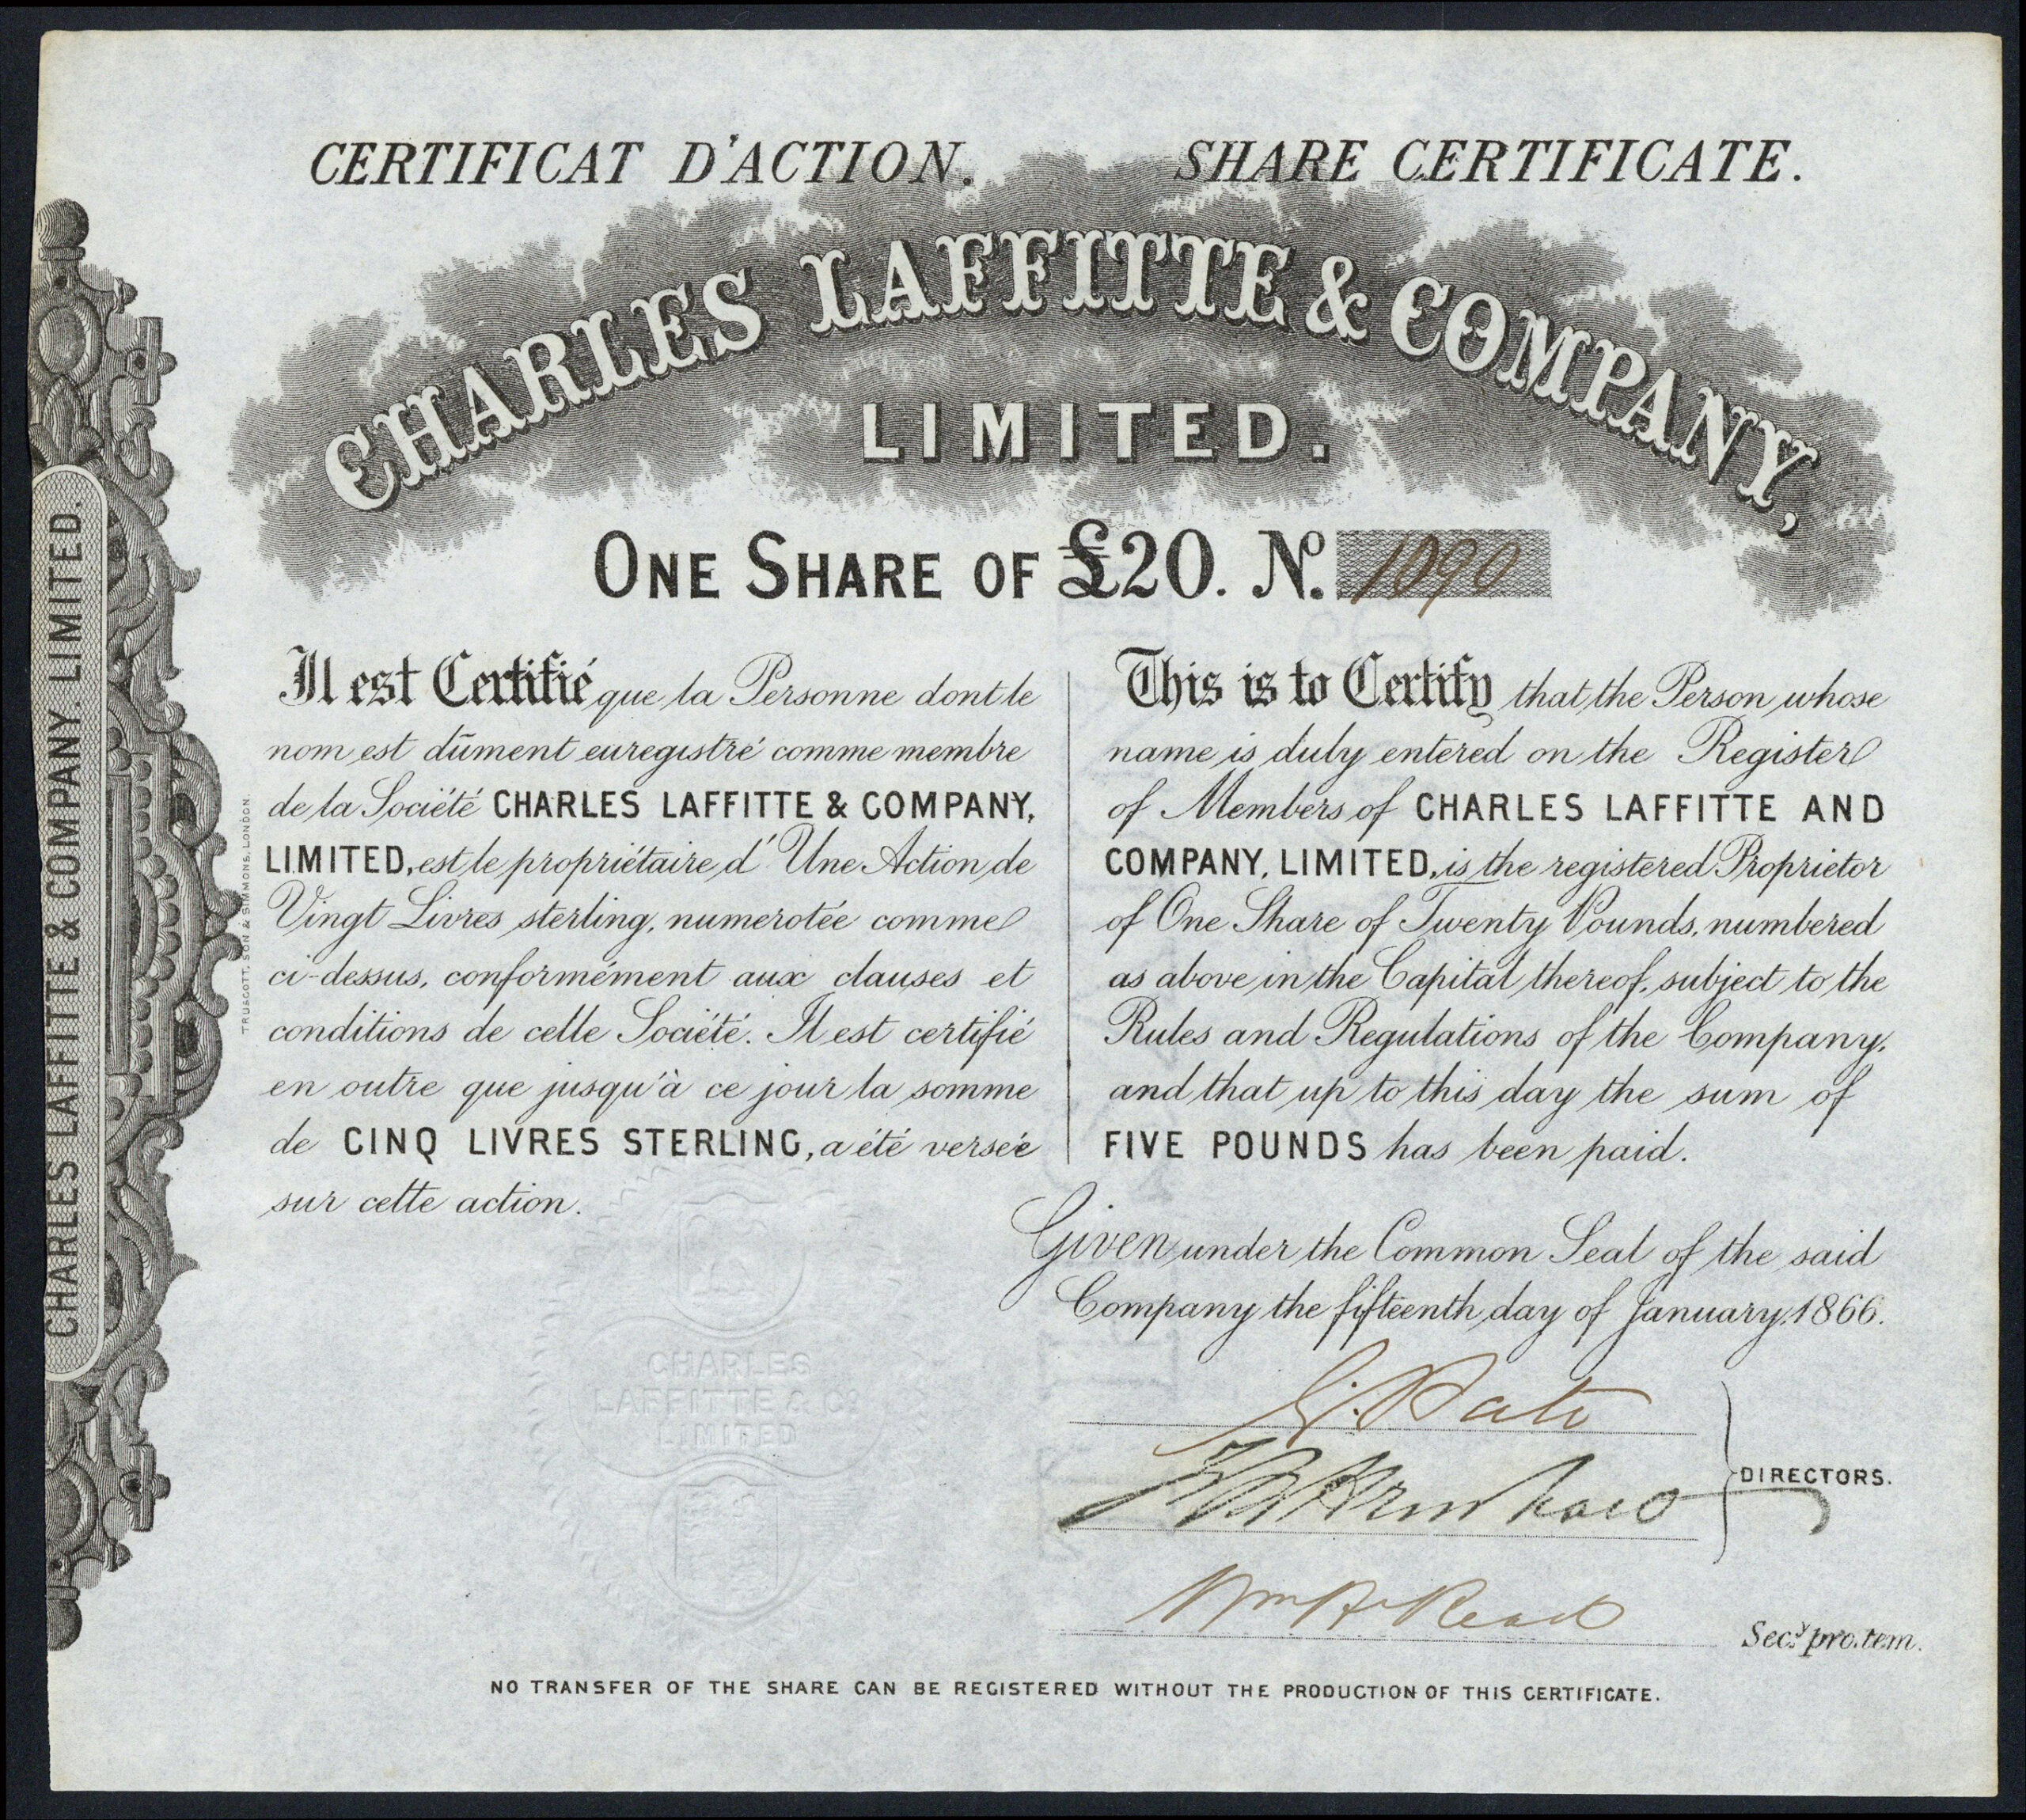 CERTIFICAT D'ACTION.
SHARE CERTIFICATE.
CHARLES LAFFITTE & COMPANY,
LIMITED.
ONE SHARE OF £20. No. 1090
Il est Certifié que la Personne dont le
nom est dûment euregistré comme membre
de la Société CHARLES LAFFITTE & COMPANY,
LIMITED, est le propriétaire d'Une Action de
Vingt Livres sterling, numerotée comme
ci-dessus, conformément aux clauses et
conditions de celle Société. Il est certifié
en outre que jusqu'à ce jour la somme
de CINQ LIVRES STERLING, a été versée
sur cette action.
This is to Certify that the Person whose
name is duly entered on the Register
of Members of CHARLES LAFFITTE AND
COMPANY, LIMITED, is the registered Proprietor
of One Share of Twenty Pounds, numbered
as above in the Capital thereof, subject to the
Rules and Regulations of the Company,
and that up to this day the sum of
FIVE POUNDS has been paid.
Given under the Common Seal of the said
Company the fifteenth day of January, 1866.
DIRECTORS.
Wm H. Read
Secy. pro. tem.
CHARLES
LAFFITTE & Co
LIMITED
NO TRANSFER OF THE SHARE CAN BE REGISTERED WITHOUT THE PRODUCTION OF THIS CERTIFICATE.
CHARLES LAFFITTE & COMPANY. LIMITED.
TRUSCOTT, SON & SIMMONS, LONDON.